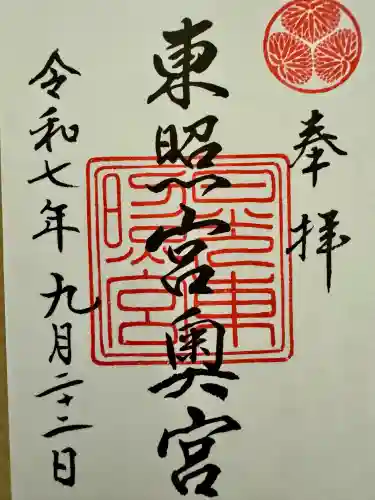 奉拝
東照宮奥宮
日光東照宮
令和七年九月二十二日